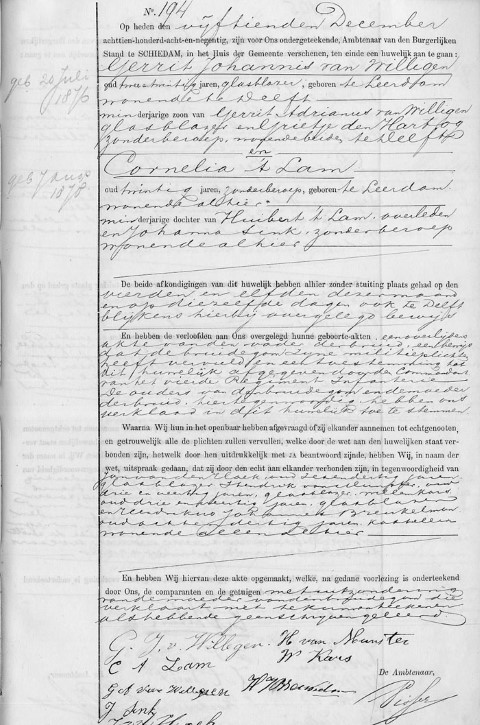 No. 194
Op heden den vijftienden December
achttien-honderd-acht-en-negentig, zijn voor Ons ondergeteekende, Ambtenaar van den Burgerlijken
Stand te SCHIEDAM, in het Huis der Gemeente verschenen, ten einde een huwelijk aan te gaan:
Gerrit Johannis van Willigen
oud jaren, glasblazer, geboren te Leerdam
wonende te Delft
minderjarige zoon van Gerrit Adrianus van Willigen
glasblazer en Grietje den Hartog
zonder beroep, wonende beiden te Delft
en
Cornelia 't Lam
oud twintig jaren, zonder beroep, geboren te Leerdam
wonende alhier
minderjarige dochter van Huibert 't Lam, overleden
en Johanna Sink, zonder beroep
wonende alhier
geb 20 Juli
1876
geb 7 Aug
1878
De beide afkondigingen van dit huwelijk hebben alhier zonder stuiting plaats gehad op den
vierden en elfden dezer maand
en op diezelfde dagen ook te Delft
blijkens hierbij overgelegd bewijs
En hebben de verloofden aan Ons overgelegd hunne geboorte-akten,
akte van den vader der bruid, een bewijs
dat de bruidegom zijne militieplichten
heeft vervuld en eene toestemming tot
dit huwelijk afgegeven door den Commandant
van het vierde Regiment Infanterie
De ouders van den bruidegom en de moeder
der bruid, hier tegenwoordig hebben ons
verklaard in dit huwelijk toe te stemmen
Waarna Wij hun in het openbaar hebben afgevraagd of zij elkander aannemen tot echtgenooten,
en getrouwelijk alle de plichten zullen vervullen, welke door de wet aan den huwelijken staat ver-
bonden zijn, hetwelk door hen uitdrukkelijk met JA beantwoord zijnde, hebben Wij, in naam der
wet, uitspraak gedaan, dat zij door den echt aan elkander verbonden zijn, in tegenwoordigheid van
jaren
glasblazer, Hendrik van Munster, oud
drie en veertig jaren, glasblazer, Willem Kars
oud drie en jaren, glasblazer
en
oud acht en dertig jaren, kastelein
wonende allen alhier
En hebben Wij hiervan deze akte opgemaakt, welke, na gedane voorlezing is onderteekend
door Ons, de comparanten en de getuigen met uitzondering
van de moeder van den bruidegom die
verklaart niet te kunnen teekenen
als hebbende geen schrijven geleerd
G. J. v. Willegen H van Munster
C t Lam W Kars
G A van Willegen
J Sink
De Ambtenaar,